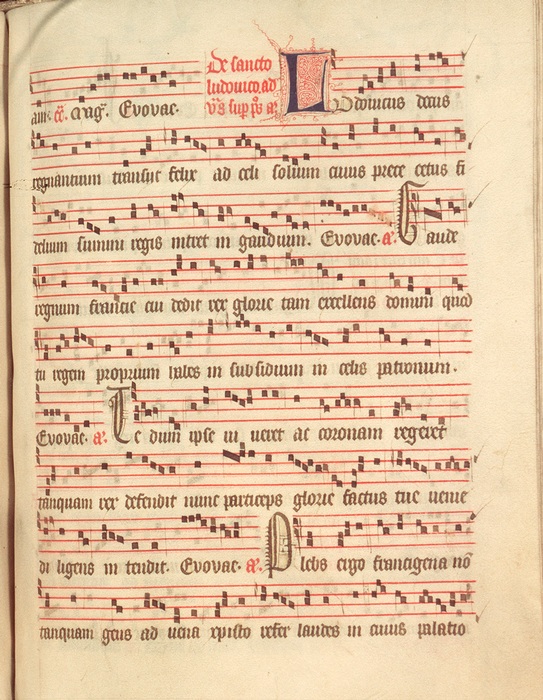 De sancto
ludovico ad
am. Aug. Evovae. Ludovicus decus
regnantium transiit felix ad celi solium cuius prece cetus fi
delium summi regis intret in gaudium. Evovae. a. Gaude
regnum francie cui dedit rex glorie tam excellens domum quod
tu regem proprium habes in subsidium in celis patronum.
Evovae. a. Te dum ipse iu veret ac coronam regeret
tanquam rex defendit nunc particeps glorie factus tue venie
di ligens in tendit. Evovae. a. Plebs ergo francigena nō
tanquam gens ad vena xpisto refer laudes in cuius palatio